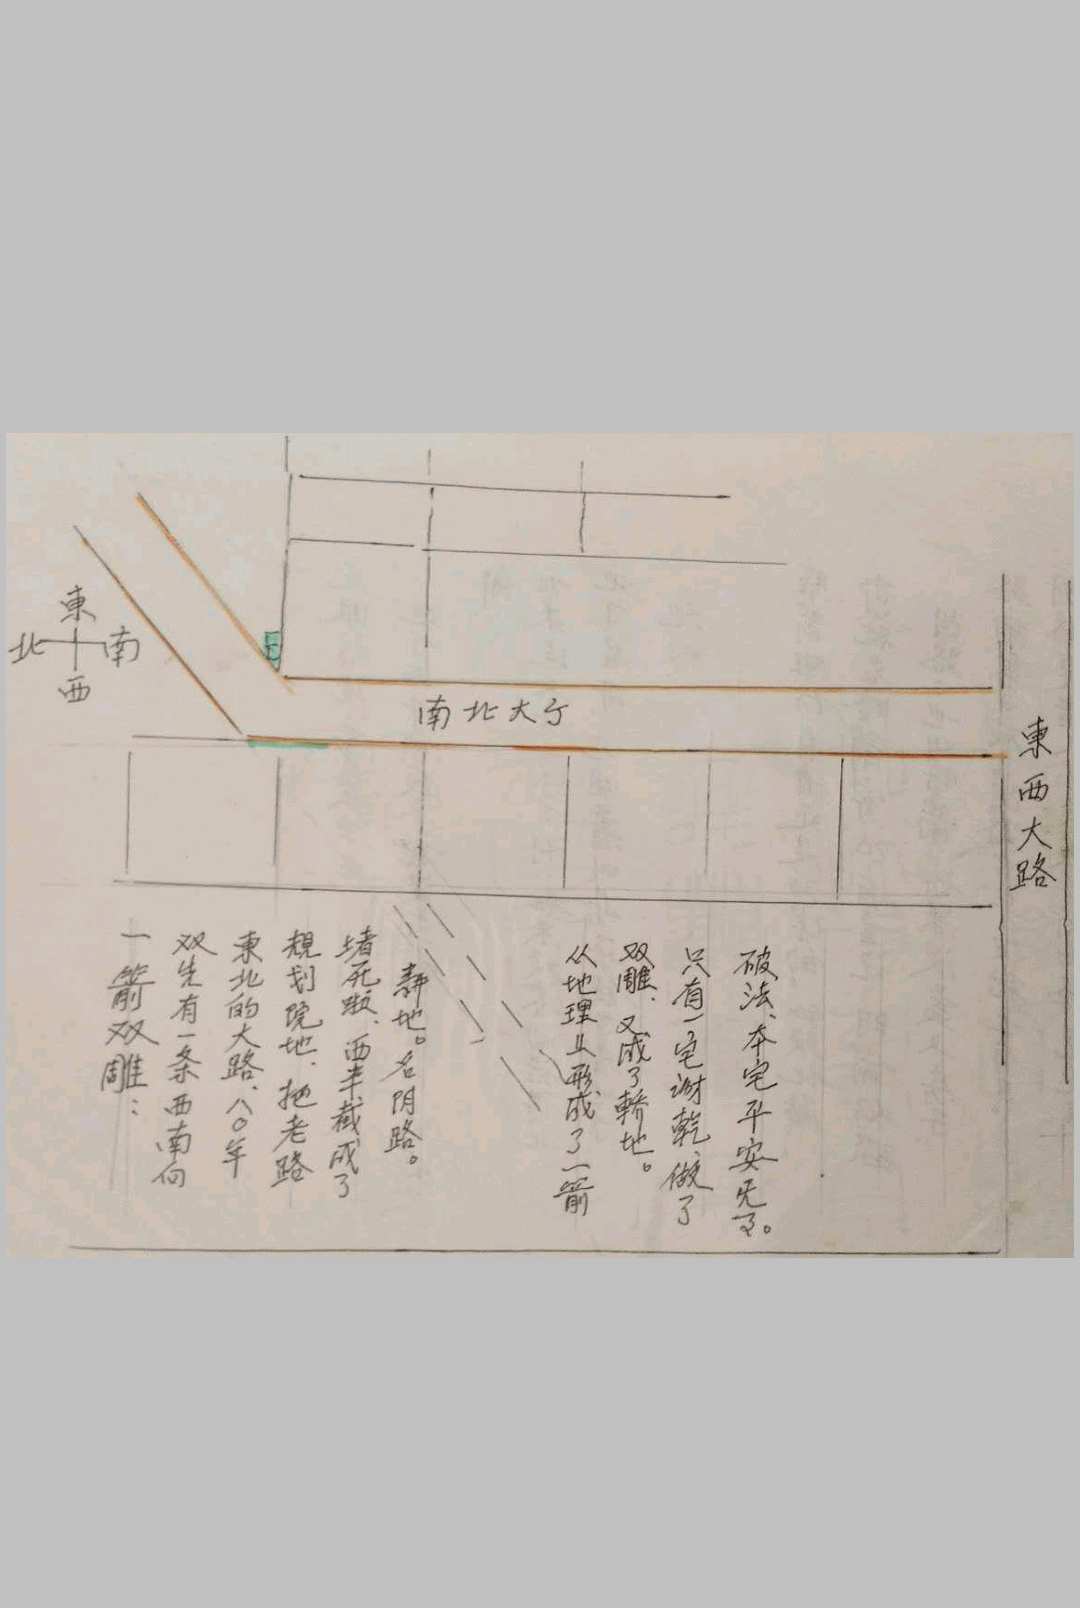 東
北
南
西
南北大厅
東西大路
一箭双雕：
双先有一条西南向
東北的大路、八〇年
規划院地、把老路
堵死啦、西半截成了
静地。名阴路。
从地理上形成了一箭
双雕、又成了轿地。
只有一宅谢乾、做了
破法、本宅平安无了。